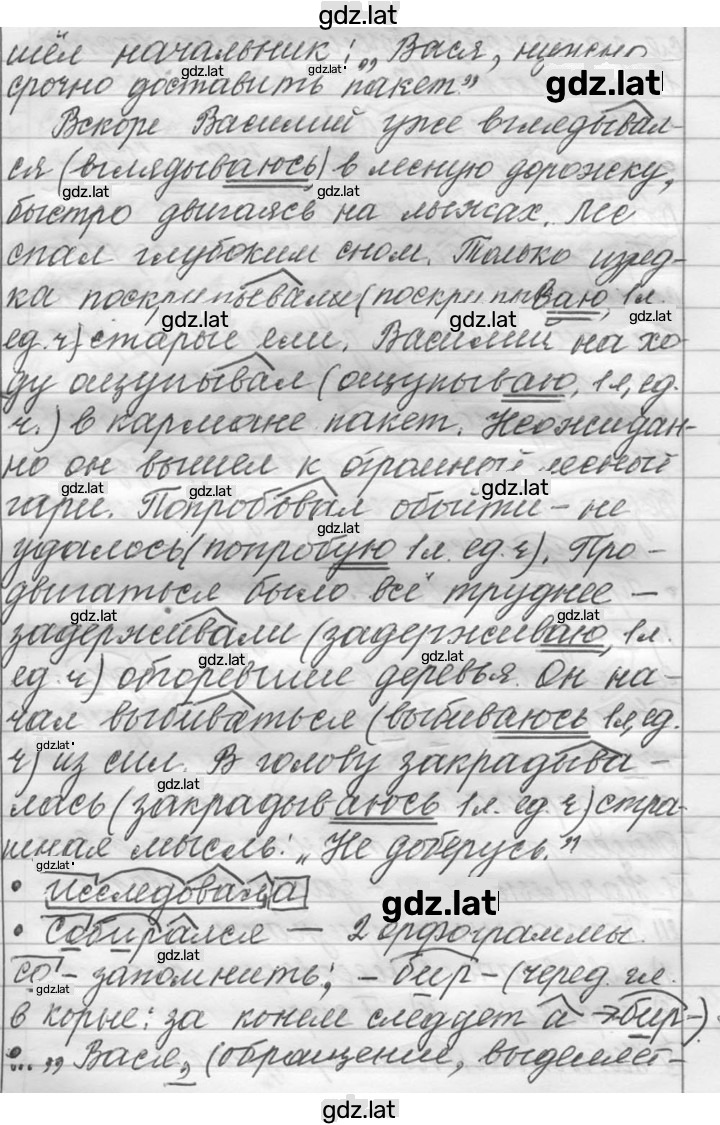 gdz.lat
шёл начальник: „Вася, нужно
срочно доставить пакет.”
gdz.lat gdz.lat gdz.lat
Вскоре Василий уже вглядывал-
ся (вглядываюсь) в лесную дорожку,
gdz.lat gdz.lat
быстро двигаясь на лыжах. Лес
спал глубоким сном. Только изред-
ка поскрипывали (поскрипываю, 1 л.
gdz.lat gdz.lat gdz.lat
ед. ч) старые ели. Василий на хо-
ду ощупывал (ощупываю, 1 л, ед.
ч.) в кармане пакет. Неожидан-
но он вышел к огромной лесный
gdz.lat gdz.lat gdz.lat
гари. Попробовал обойти – не
gdz.lat
удалось (попробую 1 л. ед. ч). Про-
двигаться было всё труднее –
gdz.lat gdz.lat
задерживали (задерживаю, 1 л.
gdz.lat gdz.lat
ед. ч) оторевшие деревья. Он на-
чал выбиваться (выбиваюсь 1 л, ед.
gdz.lat
ч) из сил. В голову закрадыва-
gdz.lat
лась (закрадываюсь 1 л. ед. ч) стра-
шная мысль: „Не доберусь.”
gdz.lat
• исследовала
gdz.lat
• Собирался — 2 орфограммы.
gdz.lat
со – запомнить; – бир – (черед. гл.
gdz.lat
в корне: за конем следует а → бир-)
... „Вася, (обращение, выделяет-
gdz.lat